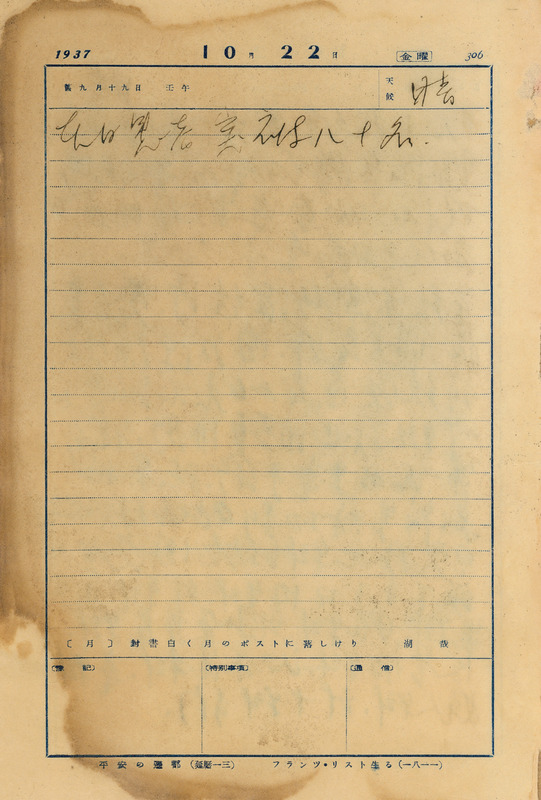 1937 10月22日 金曜 306
舊九月十九日 壬午 天候 晴
患者 八十名.
〔月〕 封書白く月のポストに落しけり 湖哉
〔豫記〕 〔特別事項〕 〔通信〕
平安の遷都(延暦一三) フランツ・リスト生る(一八一一)